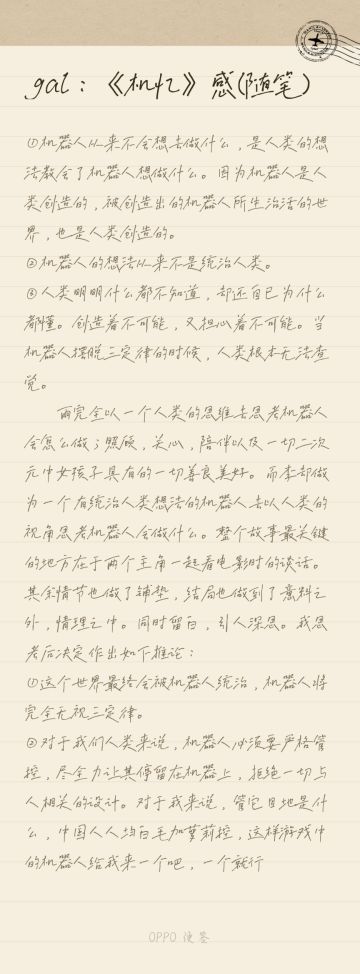 gal：《机忆》感(随笔)
①机器人从来不会想去做什么，是人类的想
法教会了机器人想做什么。因为机器人是人
类创造的，被创造出的机器人所生活的世
界，也是人类创造的。
②机器人的想法从来不是统治人类。
③人类明明什么都不知道，却还自已为什么
都懂。创造着不可能，又担心着不可能。当
机器人摆脱三定律的时候，人类根本无法查
觉。
雨完全以一个人类的思维去思考机器人
会怎么做；照顾，关心，陪伴以及一切二次
元中女孩子具有的一切善良美好。而李却做
为一个有统治人类想法的机器人去以人类的
视角思考机器人会做什么。整个故事最关键
的地方在于两个主角一起看电影时的谈话。
其余情节也做了铺垫，结局也做到了意料之
外，情理之中。同时留白，引人深思。我思
考后决定作出如下推论：
①这个世界最终会被机器人统治，机器人将
完全无视三定律。
②对于我们人类来说，机器人必须要严格管
控，尽全力让其停留在机器上，拒绝一切与
人相关的设计。对于我来说，管它目地是什
么，中国人人均白毛加萝莉控，这样游戏中
的机器人给我来一个吧，一个就行
OPPO 便签